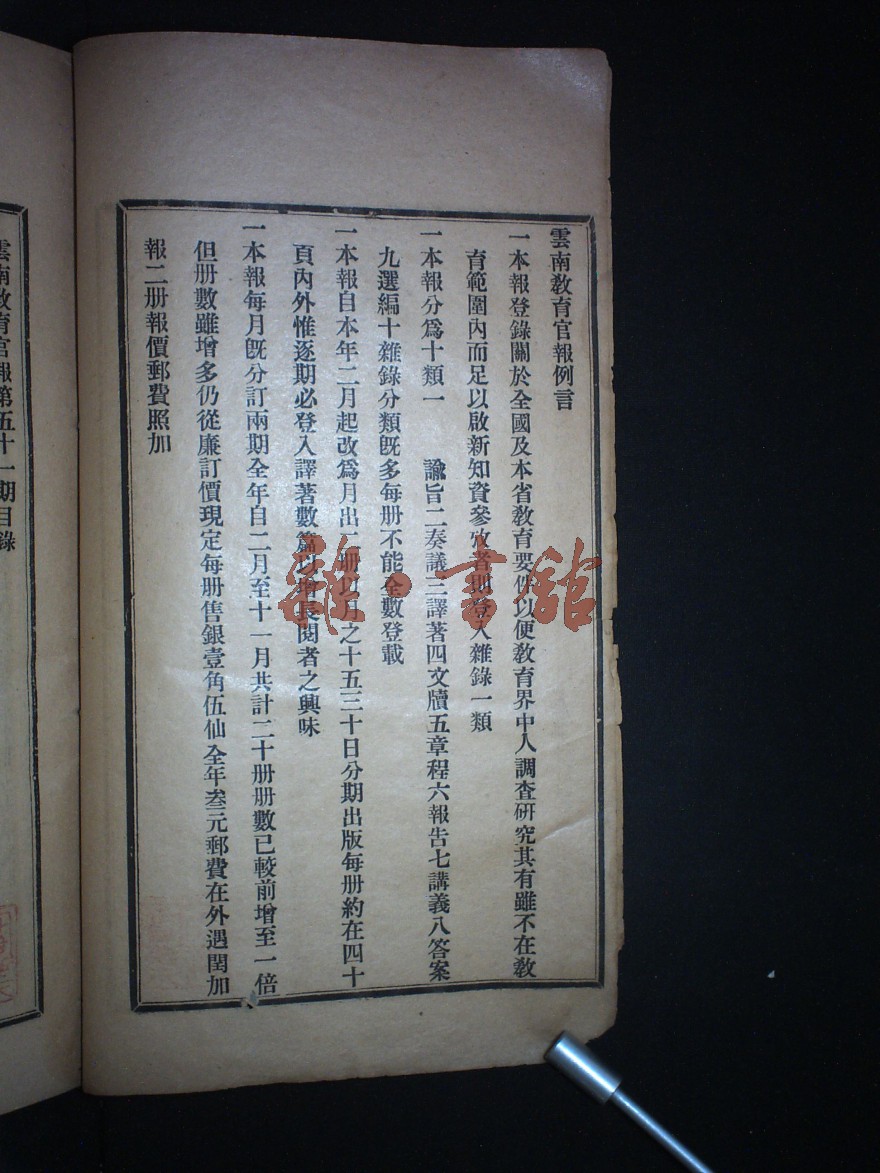 雲南敎育官報例言
一本報登錄關於全國及本省敎育要件以便敎育界中人調查研究其有雖不在敎
育範圍內而足以啟新知資參攷者則登入雜錄一類
一本報分爲十類一 諭旨二奏議三譯著四文牘五章程六報告七講義八答案
九選編十雜錄分類旣多每册不能全數登載
一本報自本年二月起改爲月出二册以月之十五三十日分期出版每册約在四十
頁內外惟逐期必登入譯著數篇以增長閱者之興味
一本報每月旣分訂兩期全年自二月至十一月共計二十册册數已較前增至一倍
但册數雖增多仍從廉訂價現定每册售銀壹角伍仙全年叁元郵費在外遇閏加
報二册報價郵費照加
雲南敎育官報第五十一期目錄
雜·書館